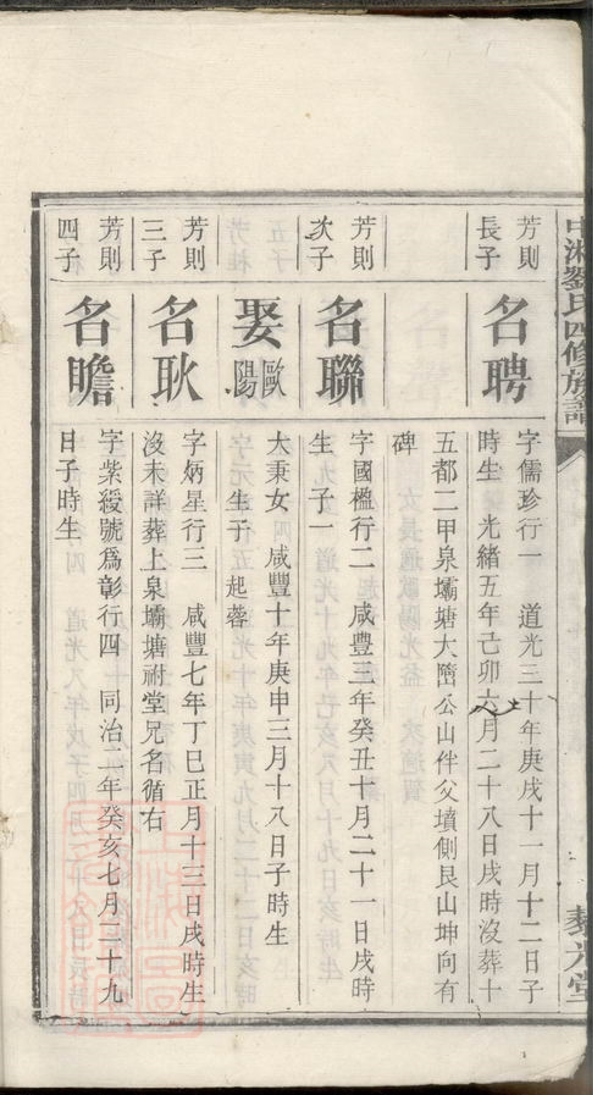 中湘劉氏四修族譜
芳則
長子
名聘
字儒珍行一 道光三十年庚戌十一月十二日子
時生 光緒五年己卯六月二十八日戌時沒葬十
五都二甲泉壩塘大 公山伴父墳側艮山坤向有
碑
芳則
次子
名聯
字國楹行二 咸豊三年癸丑十月二十一日戌時
生 子一
娶歐陽
大秉女 咸豐十年庚申三月十八日子時生
生子 起蓉
芳則
三子
名耿
字炳星行三 咸豐七年丁巳正月十三日戌時生
沒未詳葬上泉壩塘祔堂兄名循右
芳則
四子
名瞻
字紫綬號爲彰行四 同治二年癸亥七月二十九
日子時生